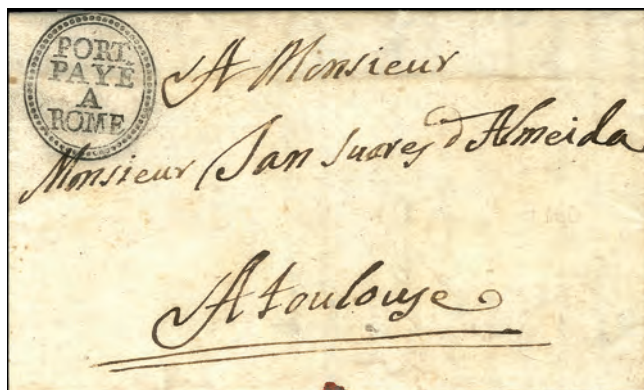 PORT.
PAYÉ
A
ROME
A Monsieur
Monsieur Jan Suares d'Almeida
A toulouse